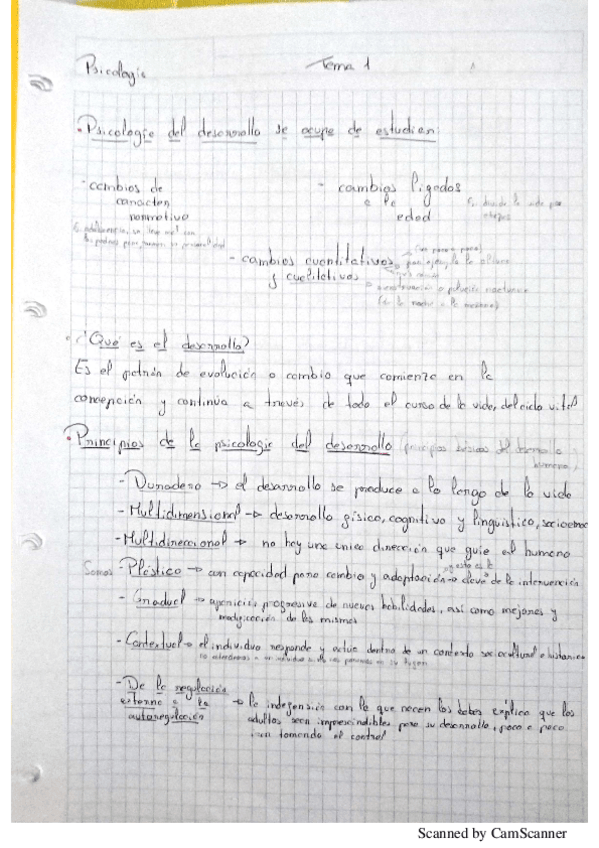 Psicología Tema 1
Psicología del desarrollo se ocupa de estudiar:
- cambios de
caracter
normativo
- cambios ligados
a la
edad
Ej. divide la vida por
etapas
Ej. adolescencia, se lleva mal con
los padres para formar su personalidad
- cambios cuantitativos
y cualitativos
por ejemplo la altura
menstruación o polución nocturna
(de la noche a la mañana)
¿Qué es el desarrollo?
Es el patrón de evolución o cambio que comienza en la
concepción y continúa a través de todo el curso de la vida, del ciclo vital
Principios de la psicología del desarrollo (principios básicos del desarrollo
humano)
- Duradero → el desarrollo se produce a lo largo de la vida
- Multidimensional → desarrollo físico, cognitivo y linguistico, socioemo
- Multidireccional → no hay una única dirección que guie al humano
Somos - Plástico → con capacidad para cambio y adaptación → esta es la clave de la intervención
- Gradual → aparición progresiva de nuevas habilidades, así como mejoras y
modificación de las mismas
- Contextual → el individuo responde y actúa dentro de un contexto sociocultural e historico
no entendemos a un individuo si no nos ponemos en su lugar
- De la regulación
externa a la
autoregulación
→ la indefensión con la que nacen los bebes explica que los
adultos sean imprescindibles para su desarrollo, poco a poco
iran tomando el control
Scanned by CamScanner